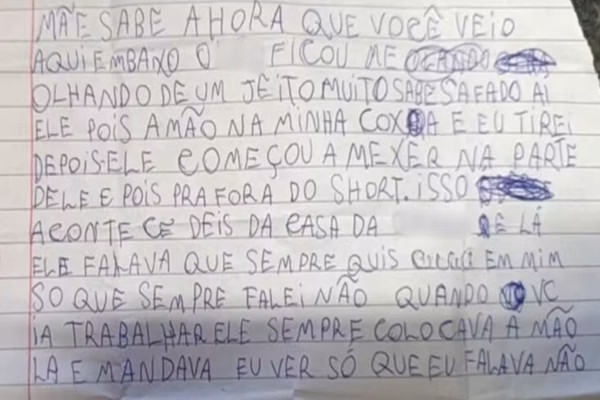 MÃE SABE A HORA QUE VOCÊ VEIO
AQUI EMBAIXO O FICOU ME
OLHANDO DE UM JEITO MUITO SABE SAFADO AI
ELE POIS A MÃO NA MINHA COXA E EU TIREI
DEPOIS ELE COMEÇOU A MEXER NA PARTE
DELE E POIS PRA FORA DO SHORT. ISSO
ACONTECE DEIS DA CASA DA E LÁ
ELE FALAVA QUE SEMPRE QUIS EM MIM
SO QUE SEMPRE FALEI NÃO QUANDO VC
IA TRABALHAR ELE SEMPRE COLOCAVA A MÃO
LA E MANDAVA EU VER SÓ QUE EU FALAVA NÃO